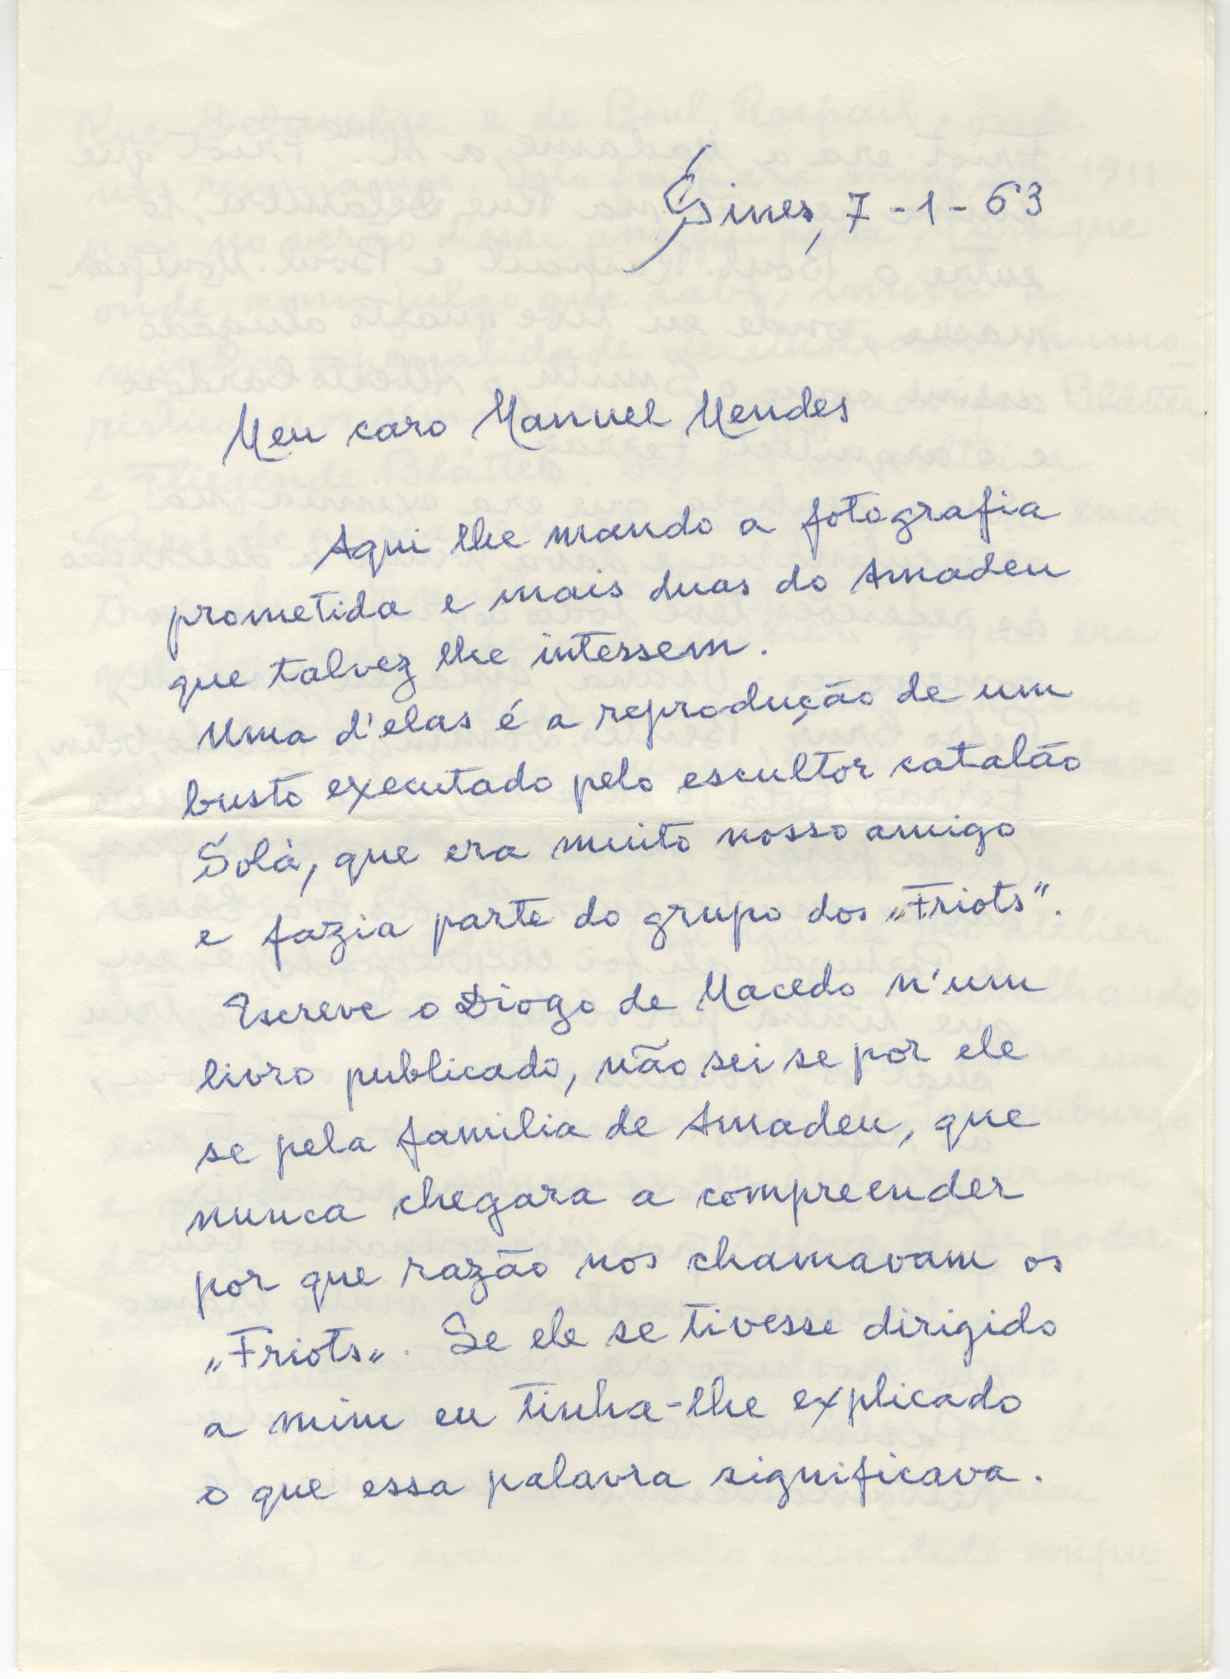 Sines, 7-1-63
Meu caro Manuel Mendes
Aqui lhe mando a fotografia
prometida e mais duas do Amadeu
que talvez lhe intessem.
Uma d'elas é a reprodução de um
busto executado pelo escultor catalão
Solá, que era muito nosso amigo
e fazia parte do grupo dos „Friots".
Escreve o Diogo de Macedo n'um
livro publicado, não sei se por ele
se pela familia de Amadeu, que
nunca chegara a compreender
por que razão nos chamavam os
„Friots„. Se ele se tivesse dirigido
a mim eu tinha-lhe explicado
o que essa palavra significava.